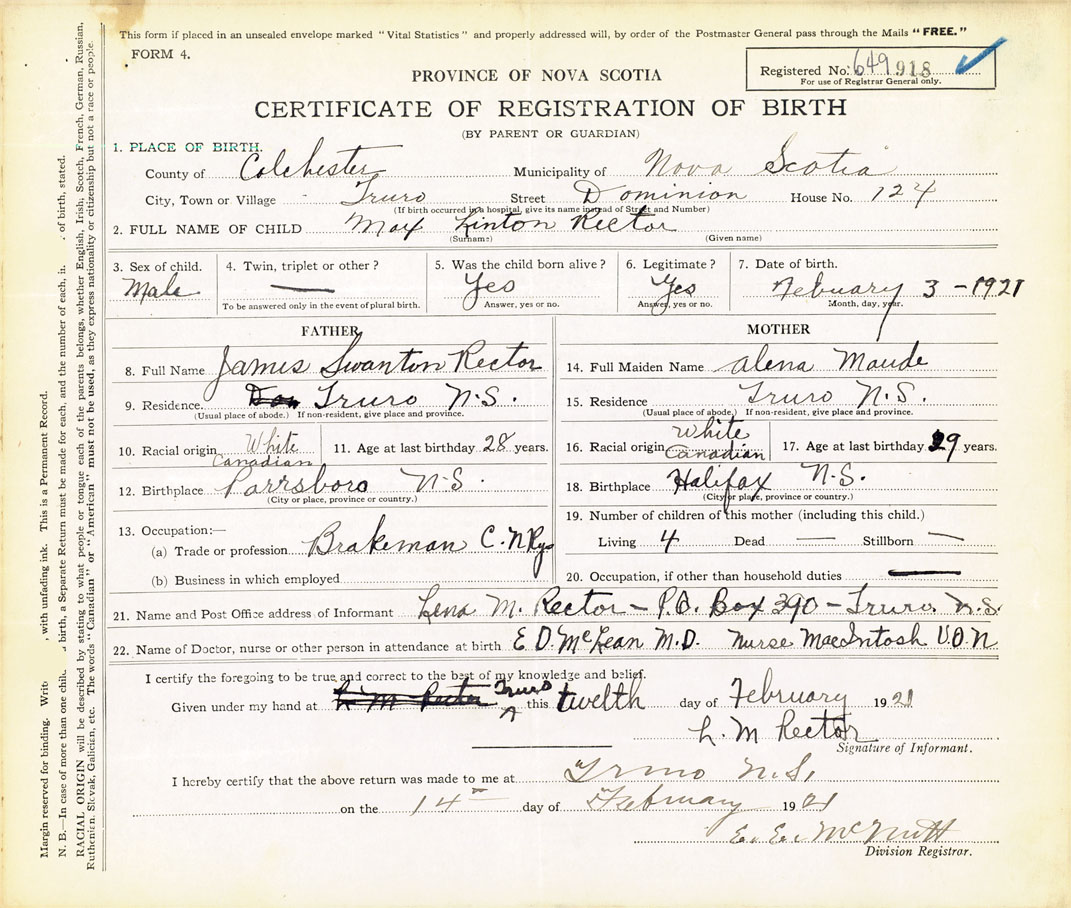 This form if placed in an unsealed envelope marked "Vital Statistics" and properly addressed will, by order of the Postmaster General pass through the Mails "FREE."
FORM 4.
Registered No: 649918
For use of Registrar General only.
PROVINCE OF NOVA SCOTIA
CERTIFICATE OF REGISTRATION OF BIRTH
(BY PARENT OR GUARDIAN)
1. PLACE OF BIRTH.
County of Colchester Municipality of Nova Scotia
City, Town or Village Truro Street Dominion House No. 124
(If birth occurred in a hospital, give its name instead of Street and Number)
2. FULL NAME OF CHILD Max Linton Rector
(Surname) (Given name)
3. Sex of child. 4. Twin, triplet or other? 5. Was the child born alive? 6. Legitimate? 7. Date of birth.
Male — Yes Yes Febuary 3 - 1921
To be answered only in the event of plural birth. Answer, yes or no. Answer, yes or no. Month, day, year.
FATHER
8. Full Name James Swanton Rector
9. Residence. Truro N.S.
(Usual place of abode.) If non-resident, give place and province.
10. Racial origin White Canadian 11. Age at last birthday 28 years.
12. Birthplace Parrsboro N.S.
(City or place, province or country.)
13. Occupation:—
(a) Trade or profession Brakeman C.N Rys
(b) Business in which employed
MOTHER
14. Full Maiden Name Alena Maude
15. Residence Truro N.S.
(Usual place of abode.) If non-resident, give place and province.
16. Racial origin White Canadian 17. Age at last birthday 29 years.
18. Birthplace Halifax N.S.
(City or place, province or country.)
19. Number of children of this mother (including this child.)
Living 4 Dead — Stillborn —
20. Occupation, if other than household duties —
21. Name and Post Office address of Informant Lena M. Rector - P.O. Box 390 - Truro. N.S.
22. Name of Doctor, nurse or other person in attendance at birth E D. McLean M.D. Nurse MacIntosh V.O.N
I certify the foregoing to be true and correct to the best of my knowledge and belief.
Given under my hand at L M Rector Truro this twelth day of February 1921
L. M Rector
Signature of Informant.
I hereby certify that the above return was made to me at Truro N.S.
on the 14th day of February 1921
E. E. McNutt
Division Registrar.
Margin reserved for binding. Writ , with unfading ink. This is a Permanent Record.
N. B.—In case of more than one chil birth, a Separate Return must be made for each, and the number of each, i of birth, stated.
RACIAL ORIGIN will be described by stating to what people or tongue each of the parents belongs, whether English, Irish, Scotch, French, German, Russian,
Ruthenian, Slovak, Galician, etc. The words "Canadian" or "American" must not be used, as they express nationality or citizenship but not a race or people.